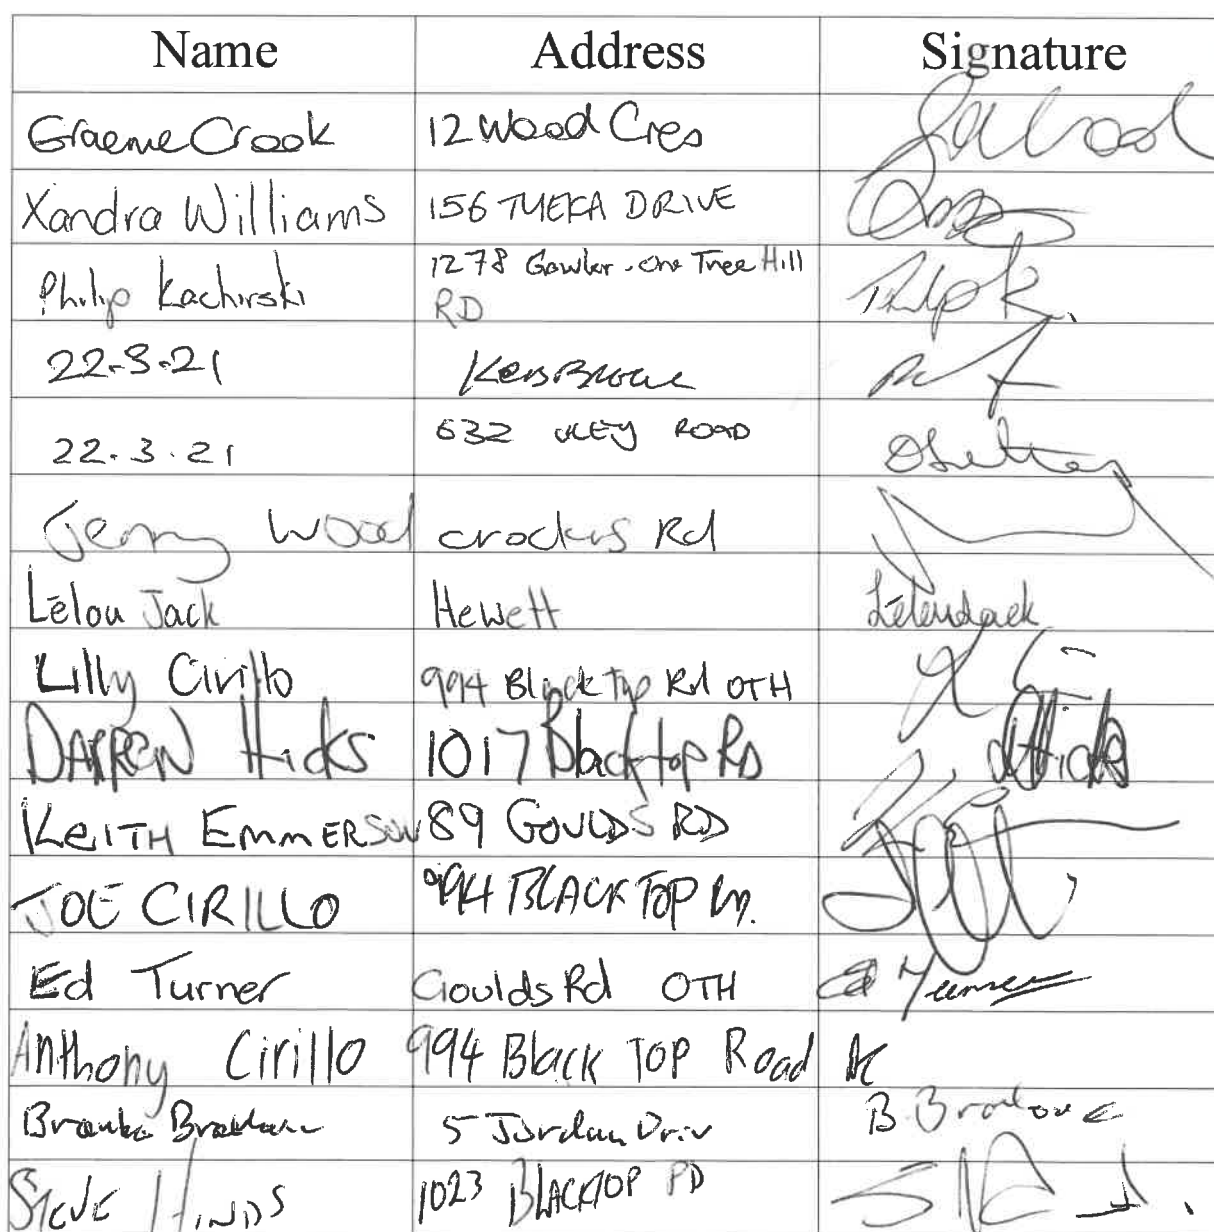 Name Address Signature
Graeme Crook 12 Wood Cres
Xandra Williams 156 DRIVE
Philip Kachirski 1278 Gawler - One Tree Hill
RD Philip K.
22-3-21 KersBrook
22.3.21 632 ULEY ROAD
Jenny Wood crockers Rd
Lelou Jack Hewett Lelou Jack
Lilly Cirillo 994 Black Top Rd OTH
DARREN Hicks 1017 Blacktop RD DHicks
KEITH EMMERSON 89 GOULDS RD
JOE CIRILLO 994 BLACK TOP RD.
Ed Turner Goulds Rd OTH Ed Turner
Anthony Cirillo 994 Black TOP Road AC
5 Jordan Driv B.
STEVE HINDS 1023 BLACKTOP RD